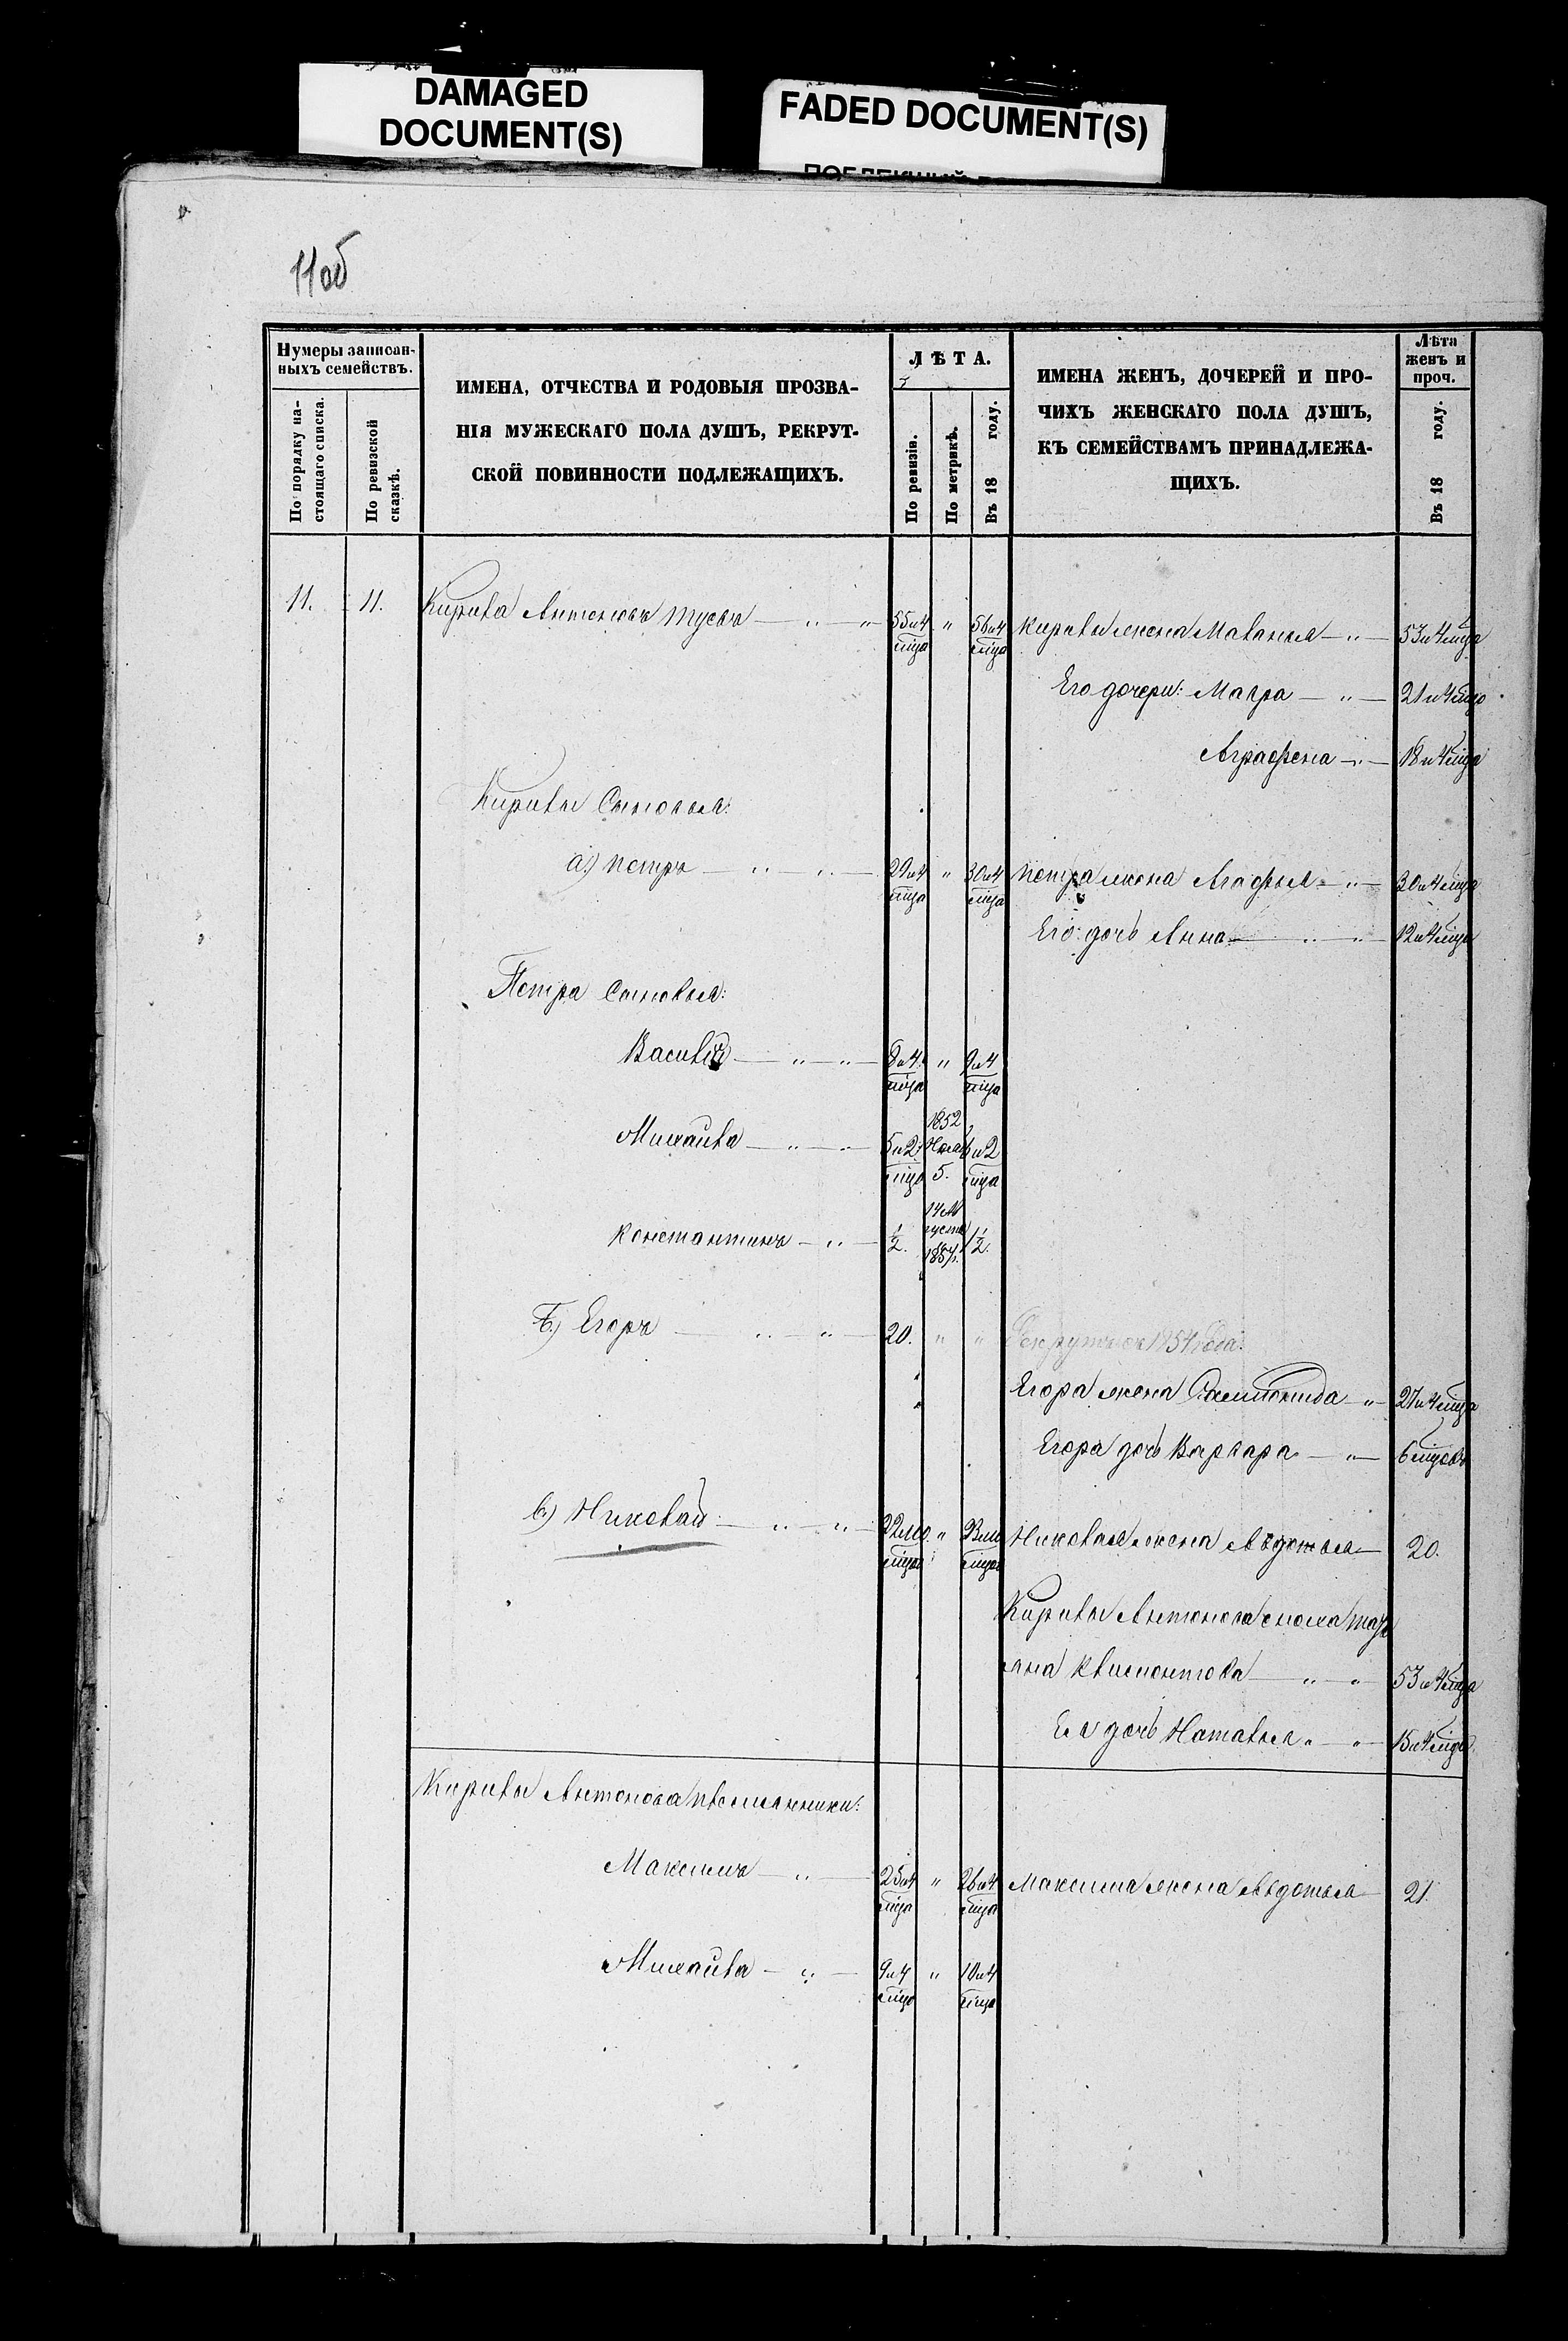 DAMAGED
DOCUMENT(S)
FADED DOCUMENT(S)
11об
Нумеры записан-
ныхъ семействъ.
По порядку на-
стоящаго списка.
По ревизской
сказкѣ.
ИМЕНА, ОТЧЕСТВА И РОДОВЫЯ ПРОЗВА-
НІЯ МУЖЕСКАГО ПОЛА ДУШЪ, РЕКРУТ-
СКОЙ ПОВИННОСТИ ПОДЛЕЖАЩИХЪ.
ЛѢТА.
По ревизіи.
По метрикѣ.
Въ 18 году.
ИМЕНА ЖЕНЪ, ДОЧЕРЕЙ И ПРО-
ЧИХЪ ЖЕНСКАГО ПОЛА ДУШЪ,
КЪ СЕМЕЙСТВАМЪ ПРИНАДЛЕЖА-
ЩИХЪ.
Лѣта
женъ и
проч.
Въ 18 году.
11. 11. Кирила Антоновъ 55 и 4 мца " 56 и 4 мца Кирилы жена Маланья — " — 53 и 4 мца
Его дочери: — " — 21 и 4 мца
Аграфена — " — 18 и 4 мца
Кирилы Сыновья:
а) Петръ — " — " — 29 и 4 мца " 30 и 4 мца Петра жена Агафья — " — 30 и 4 мца
Его дочь Анна — " — " — 12 и 4 мца
Петра Сыновья:
Василій — " — " — 8 и 4 мца " 9 и 4 мца
Михаила — " — " — 5 и 2 мца 1852 5. 6 и 2 мца
Константинъ — " — ½. 14 Августа 1857. 1½.
б) Егоръ — " — " — 20. " " Рекрутъ съ 1854 года.
Егора жена — " — 27 и 4 мца
Егора дочь Варвара — " — 6 мцовъ
в) Николай — " — " — 22 " Николая жена Авдотья — 20.
Кирилы Антонова сноха Тать
яна — " — " 53 и 4 мца
Ея дочь Наталья " — " — 15 и 4 мца
Кирилы Антонова племянники:
Максимъ — " — 25 и 4 мца " 26 и 4 мца Максима жена Авдотья — 21.
Михаила — " — 9 и 4 мца " 10 и 4 мца